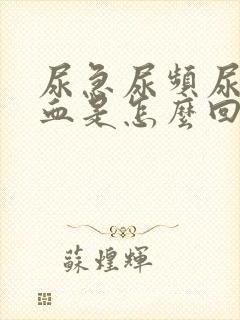 尿急尿頻尿
血是怎麼回
蘇煌輝